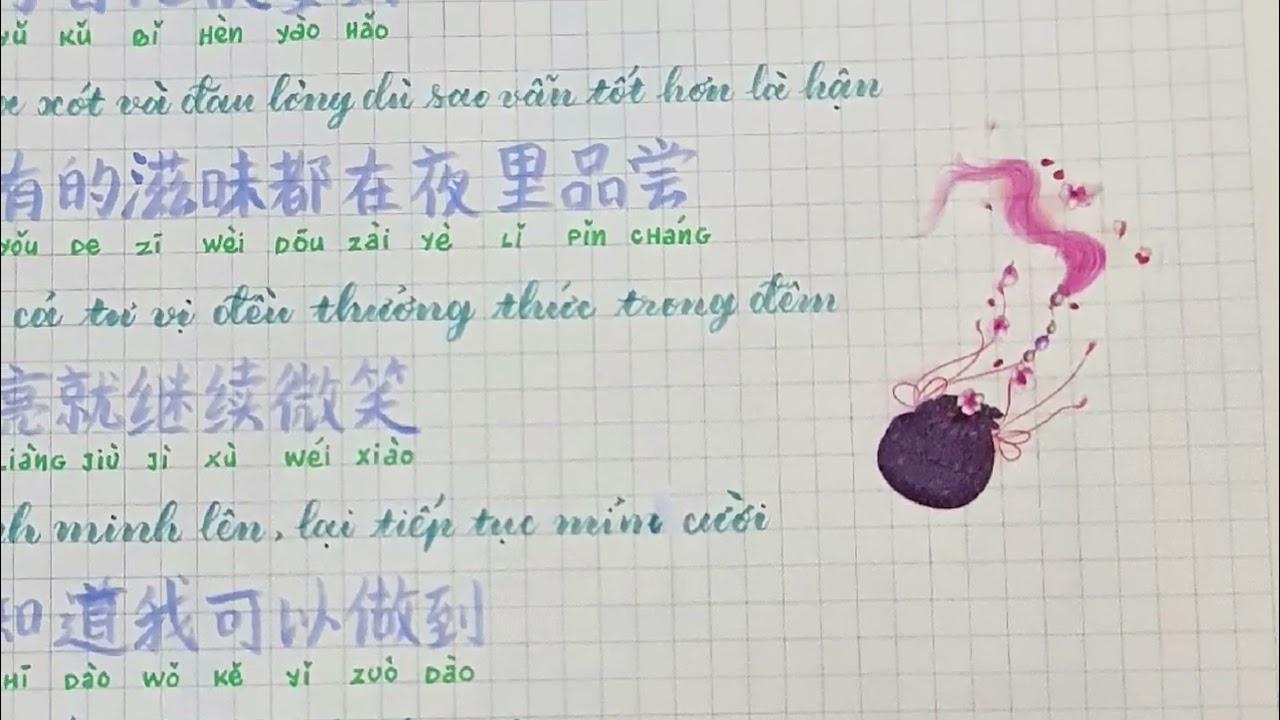 KǓ BǏ HÈN YÀO HǍO
xót và đau lòng dù sao vẫn tốt hơn là hận
有的滋味都在夜里品尝
YǑU DE ZĪ WÈI DŌU ZÀI YÈ LǏ PǏN CHÁNG
cả tư vị đều thưởng thức trong đêm
亮就继续微笑
LIÀNG JIÙ JÌ XÙ WÉI XIÀO
minh lên, lại tiếp tục mỉm cười
知道我可以做到
DÀO WǑ KĚ YǏ ZUÒ DÀO